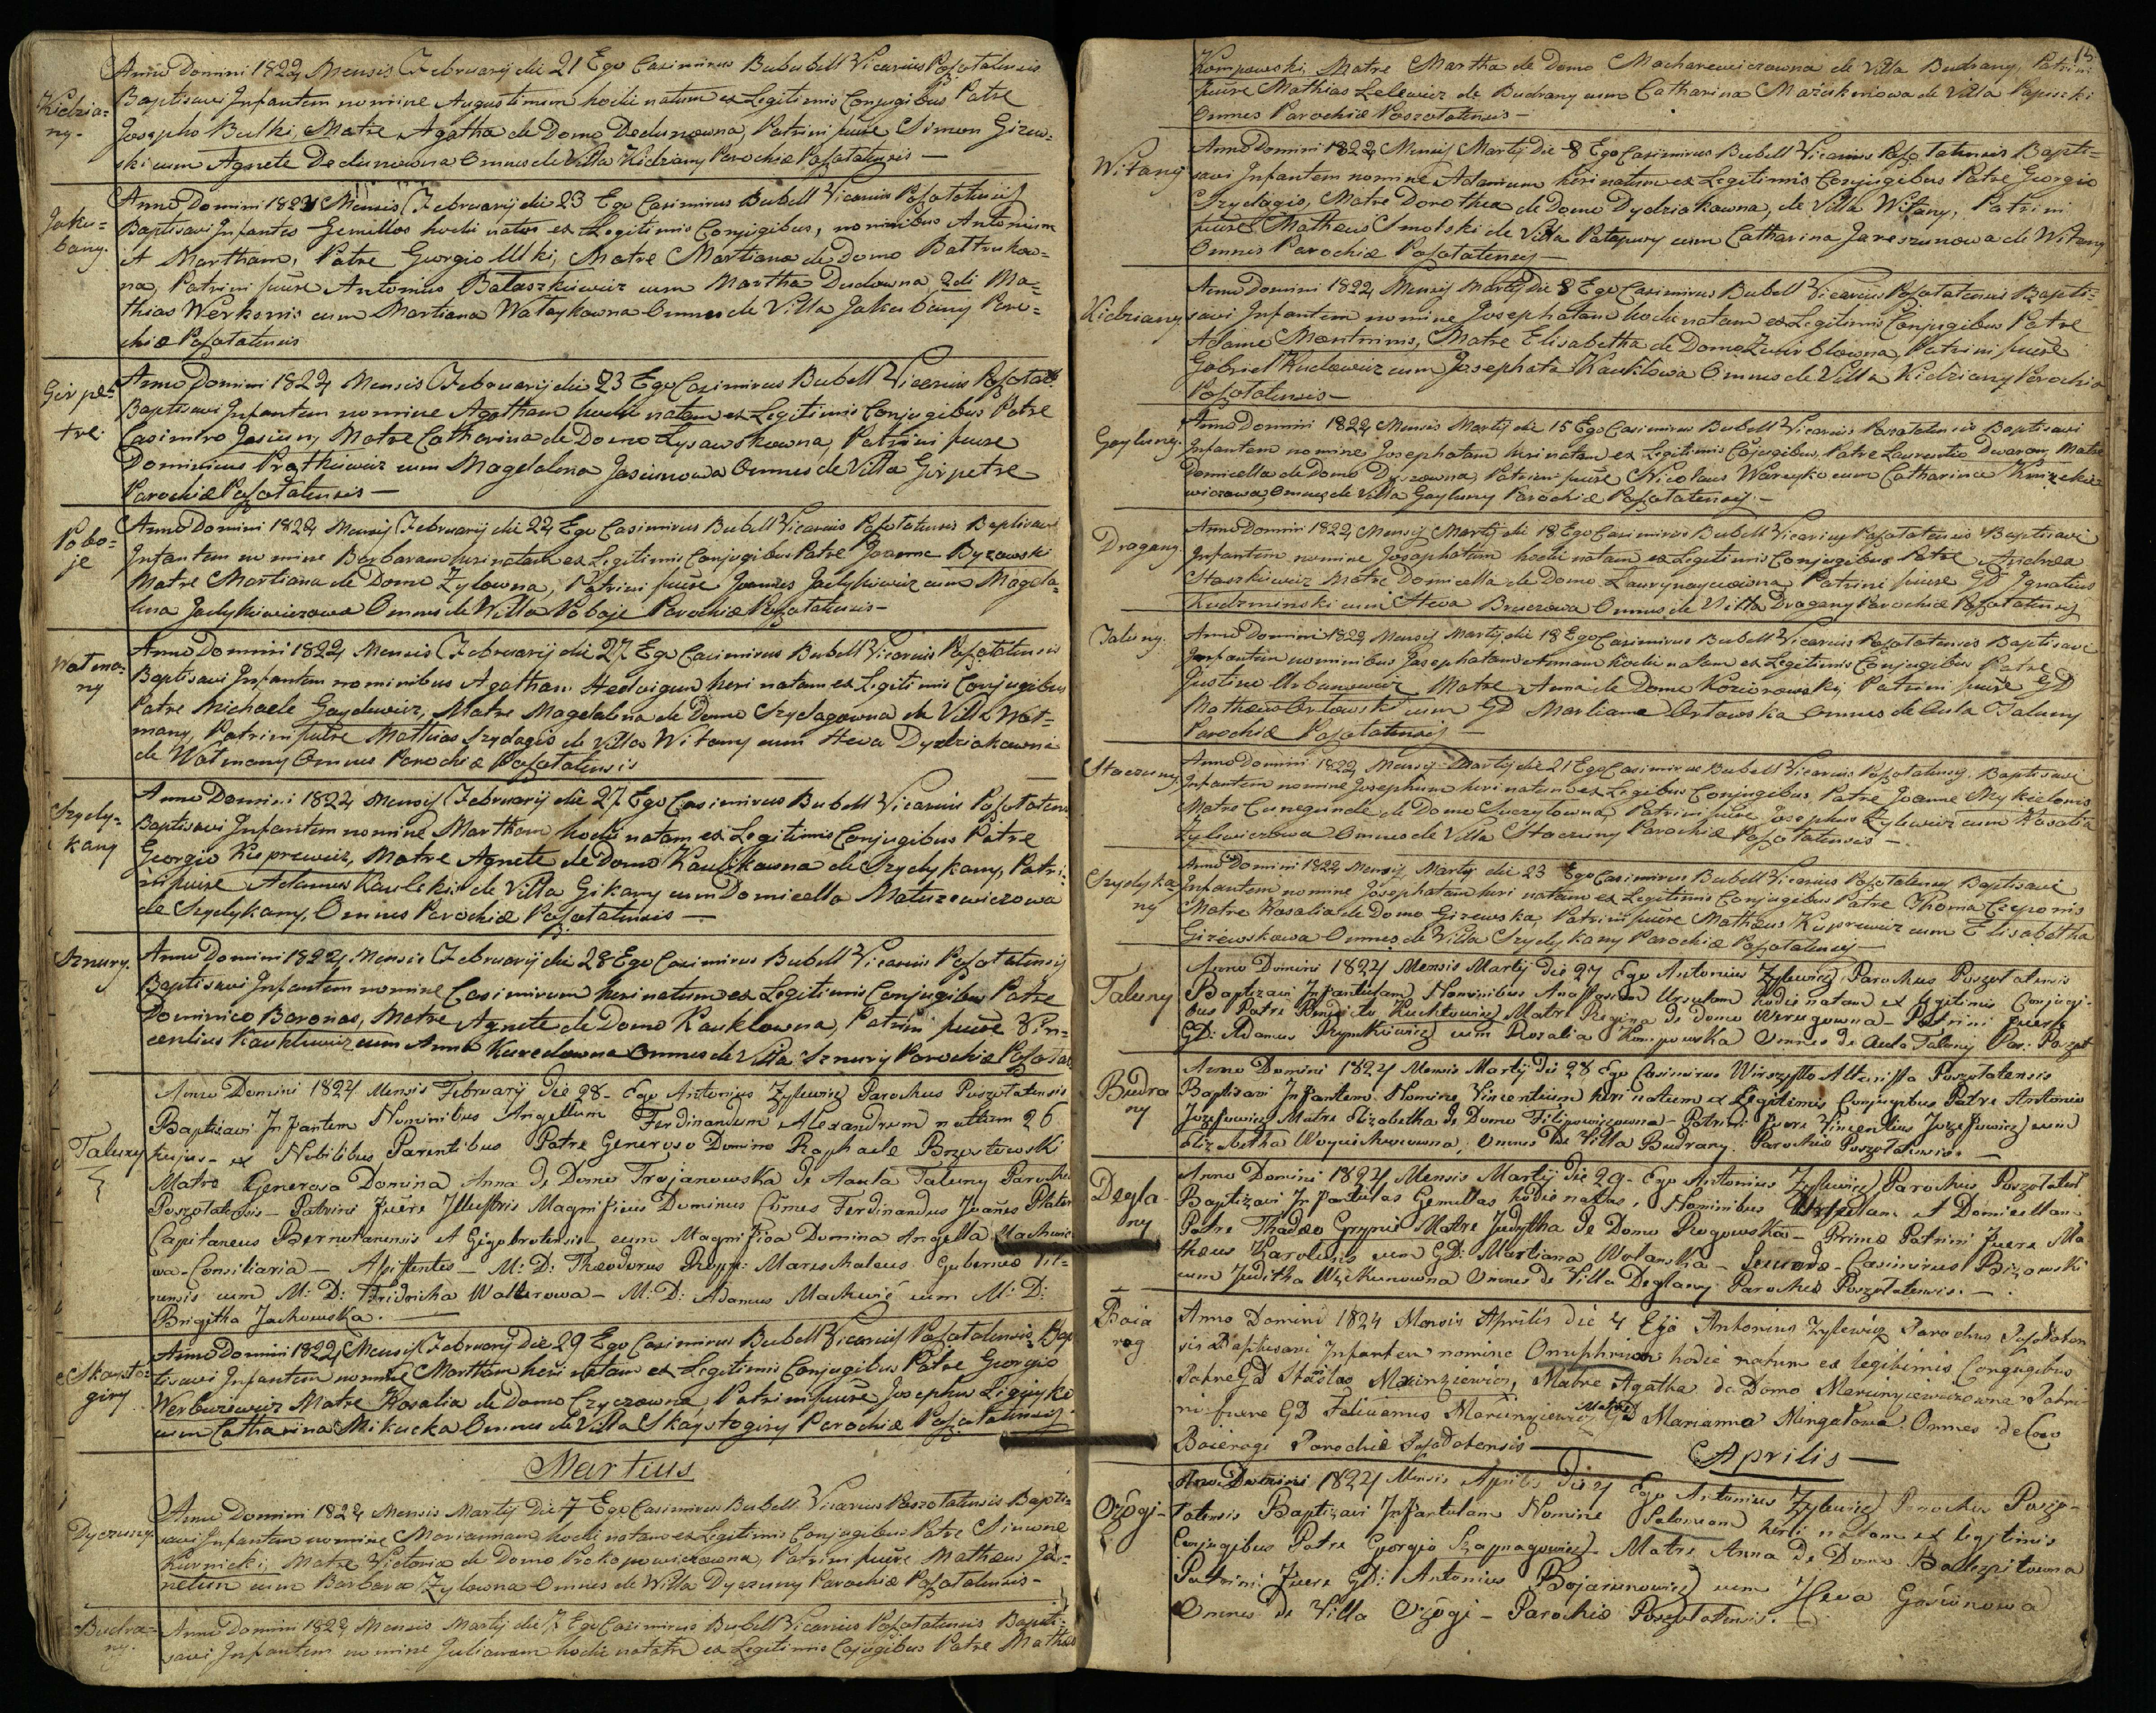 Kidzia=
ny.
Anno Domini 1824 Mensis Februarij die 21 Ego Casimirus Bubell Vicarius Poszołatensis
Baptisavi Infantem nomine Augustinum hodie natum ex Legitimis Conjugibus Patre
Josepho Bulki, Matre Agatha de Domo Dedunowna, Patrini fuere Simon Gizew=
ski cum Agnete Dedunowna Omnes de Villa Kidziany Parochiæ Poszołatensis —
Jaku=
bany.
Anno Domini 1824 Mensis Februarij die 23 Ego Casimirus Bubell Vicarius Poszołatensis
Baptisavi Infantes Gemellos hodie natos ex Legitimis Conjugibus, nominibus Antonium
et Martham, Patre Georgio Ulki, Matre Martiana de Domo Battrukow=
na, Patrini fuere Antonius Balaszkiewicz cum Martha Dudowna, 2di Ma=
thias Werkonis cum Martiana Wataykowna Omnes de Villa Jakubany Paro=
chiæ Poszołatensis
Girpe=
tre.
Anno Domini 1824 Mensis Februarij die 23 Ego Casimirus Bubell Vicarius Poszołat.
Baptisavi Infantem nomine Agatham hodie natam ex Legitimis Conjugibus Patre
Casimiro Jasiuny Matre Catharina de Domo Łysawskowna, Patrini fuere
Dominicus Prątkiewicz cum Magdalena Jasiunowa Omnes de Villa Girpetre
Parochiæ Poszołatensis —
Pobo=
je
Anno Domini 1824 Mensis Februarij die 24 Ego Casimirus Bubell Vicarius Poszołatensis Baptisavi
Infantem nomine Barbaram heri natam ex Legitimis Conjugibus Patre Joanne Byzowski
Matre Martiana de Domo Zyłowna, Patrini fuere Joannes Jadykiewicz cum Magda=
lena Jadykiewiczowa Omnes de Villa Poboje Parochiæ Poszołatensis —
Watma=
ny
Anno Domini 1824 Mensis Februarij die 27 Ego Casimirus Bubell Vicarius Poszołatensis
Baptisavi Infantem nominibus Agatham Hedvigem heri natam ex Legitimis Conjugibus
Patre Michaele Gaydewicz, Matre Magdalena de Domo Szydagowna de Villa Wat=
many, Patrini fuere Mathias Szydagis de Villa Witany cum Heva Dydziakowna
de Watmany Omnes Parochiæ Poszołatensis
Szydy=
kany
Anno Domini 1824 Mensis Februarij die 27 Ego Casimirus Bubell Vicarius Poszołatens.
Baptisavi Infantem nomine Martham hodie natam ex Legitimis Conjugibus Patre
Georgio Kuprewicz, Matre Agnete de Domo Kaulikowna de Szydykany, Patri=
ni fuere Adamus Kaulekis de Villa Gikany cum Domicella Matuzewiczowa
de Szydykany, Omnes Parochiæ Poszołatensis —
Sznury.
Anno Domini 1824 Mensis Februarij die 28 Ego Casimirus Bubell Vicarius Poszołatensis
Baptisavi Infantem nomine Casimirum heri natum ex Legitimis Conjugibus Patre
Dominico Baronas, Matre Agnete de Domo Kauklowna, Patrini fuere Vin=
centius Kauklewicz cum Anna Kuredowna Omnes de Villa Sznury Parochiæ Poszołat.
Taluny
Anno Domini 1824 Mensis Februarij Die 28 - Ego Antonius Zylewicz Parochus Poszołatensis
Baptisavi Infantem Nominibus Angellum Ferdinandum Alexandrum natum 26
hujus - ex Nobilibus Parentibus Patre Generoso Domino Raphaele Brzostowski
Matre Generosa Domina Anna de Domo Trojanowska de Aaula Taluny Parochiæ
Poszołatensis — Patrini fuere Illustris Magnificus Dominus Comes Ferdinandus Joañes Plater
Capitaneus Bernotanensis et Gigobrotensis cum Magnifica Domina Angella Machwic=
wa - Consiliaria — Assistentes — M: D: Theodorus Ropp: Mareschaleus Gubernii Vil=
nensis cum M: D: Fridricha Walterowa — M: D: Adamus Machwic cum M: D:
Brigitha Jachowska. —
Skaysto=
giry
Anno Domini 1824 Mensis Februarij Die 29 Ego Casimirus Bubell Vicarius Poszołatensis Bap=
tisavi Infantem nomine Martham heri natam ex Legitimis Conjugibus Patre Georgio
Werbuzewicz Matre Rosalia de Domo Czyczowna, Patrini fuere Josephus Ligieyko
cum Catharina Mikucka Omnes de Villa Skaystogiry Parochiæ Poszołatensis
Martius
Dyczuny
Anno Domini 1824 Mensis Martij Die 7 Ego Casimirus Bubell Vicarius Poszołatensis Bapti=
savi Infantem nomine Mariannam hodie natam ex Legitimis Conjugibus Patre Simone
Kurnicki, Matre Victoria de Domo Prokopowiczowna, Patrini fuere Matheus Ja=
netun cum Barbara Zyłowna Omnes de Villa Dyczuny Parochiæ Poszołatensis —
Budra=
ny.
Anno Domini 1824 Mensis Martij die 7 Ego Casimirus Bubell Vicarius Poszołatensis Bapti=
savi Infantem nomine Julianam hodie natam ex Legitimis Cojugibus Patre Mathæo
15
Kompowski, Matre Martha de Domo Macharewiczowna de Villa Budrany, Patrini
fuere Mathias Lelewicz de Budrany cum Catharina Mażukoniowa de Villa Papiszki
Omnes Parochiæ Poszołatensis —
Witany
Anno Domini 1824 Mensis Martij Die 8 Ego Casimirus Bubell Vicarius Poszołatensis Bapti=
savi Infantem nomine Adamum heri natum ex Legitimis Conjugibus Patre Georgio
Szydagis, Matre Dorothea de Domo Dydziakowna, de Villa Witany, Patrini
fuere Matheus Smolski de Villa Patapury cum Catharina Jareszunowa de Witany
Omnes Parochiæ Poszołatensis —
Kidziany
Anno Domini 1824 Mensis Martij Die 8 Ego Casimirus Bubell Vicarius Poszołatensis Bapti=
savi Infantem nomine Josephatam hodie natam ex Legitimis Conjugibus Patre
Adamo Montrims, Matre Elisabetha de Domo Zwirblowna, Patrini fuere
Gabriel Kudowicz cum Josephata Kauklowa Omnes de Villa Kidziany Parochiæ
Poszołatensis —
Gayluny.
Anno Domini 1824 Mensis Martij die 15 Ego Casimirus Bubell Vicarius Poszołatensis Baptisavi
Infantem nomine Josephatam heri natam ex Legitimis Cojugibus, Patre Laurentio Dwarony Matre
Domicella de Domo Dyszowna, Patrini fuere Nicolaus Wareyko cum Catharina Kruzekie=
wiczowa, Omnes de Villa Gayluny Parochiæ Poszołatensis —
Dragany.
Anno Domini 1824 Mensis Martij die 18 Ego Casimirus Bubell Vicarius Poszołatensis Baptisavi
Infantem nomine Josephatam hodie natam ex Legitimis Conjugibus Patre Andrea
Staszkiewicz Matre Domicella de Domo Ławrynaycowna, Patrini fuere GD Ignatius
Kudzminski cum Heva Bruczowa Omnes de Villa Dragany Parochiæ Poszołatensis
Taluny.
Anno Domini 1824 Mensis Martij die 18 Ego Casimirus Bubell Vicarius Poszołatensis Baptisavi
Infantem nominibus Josephatam Annam hodie natam ex Legitimis Conjugibus Patre
Justino Urbanowicz Matre Anna de Domo Koziorowski Patrini fuere GD
Matheus Orłowski cum GD Martiana Orłowska Omnes de Aula Taluny
Parochiæ Poszołatensis —
Staczuny
Anno Domini 1824 Mensis Martij die 21 Ego Casimirus Bubell Vicarius Poszołatensis Baptisavi
Infantem nomine Josephum heri natum ex Legibus Conjugibus Patre Joanne Mykielonis
Matre Cunegunde de Domo Suczyłowna, Patrini fuere Josephus Zylewicz cum Rosalia
Zylewiczowa Omnes de Villa Staczuny Parochiæ Poszołatensis —
Szydyka
ny
Anno Domini 1824 Mensis Martij die 23 Ego Casimirus Bubell Vicarius Poszołatensis Baptisavi
Infantem nomine Josephatam heri natam ex Legitimis Conjugibus Patre Thoma Czeponis
Matre Rosalia de Domo Gizewska, Patrini fuere Matheus Kuprewicz cum Elisabetha
Giżewskowa Omnes de Villa Szydykany Parochiæ Poszołatensis —
Taluny
Anno Domini 1824 Mensis Martij Die 27 Ego Antonius Zylewicz Parochus Poszołatensis
Baptizavi Infantulam Nominibus Anastasiam Ursulam hodie natam ex legitimis Conjugi-
bus Patre Benedicto Kuchlewicz Matre Regina de domo Werugowna — Patrini fuere
GD: Adamus Szymkiewicz cum Rosalia Kompowska Omnes de Aula Taluny Par: Poszoł
Budra
ny
Anno Domini 1824 Mensis Martij Die 28 Ego Casimirus Wirszyłło Altarista Poszołatensis
Baptisavi Infantem Nomine Vincentium heri natum ex Legitimis Conjugibus Patre Antonio
Jozefowicz Matre Elizabetha de Domo Filipowiczowna - Patrini fuere Vincentius Jozefowicz cum
Elizabetha Woyciechowiczowna, Omnes de Villa Budrany Parochiæ Poszołatensis. —
Degla-
ny
Anno Domini 1824 Mensis Martij Die 29 - Ego Antonius Zylewicz Parochus Poszołatens.
Baptizavi Infantulas Gemellas hodie natas, Nominibus et Domicellam
Patre Thadæo Grynis Matre Judytha de Domo Rogowska — Primæ Patrini fuere Ma
theus Karolunis cum GD: Martiana Wolanska — Secundæ - Casimirus Bizowski
cum Juditha Użekunowna Omnes de Villa Deglany Parochiæ Poszołatensis. —
Boia
rog
Anno Domini 1824 Mensis Aprilis die 4 Ego Antonius Zylewicz Parochus Poszołaten
sis Baptisavi Infantem nomine Onuphrium hodie natum ex legitimis Conjugibus
Patre GD Stanislao Marinziewicz, Matre Agatha de Domo Marcinyiewiczowna Patri-
ni fuere GD Felicianus Marcinziewicz GD Marianna Mingałowa Omnes de Loco
Boierogi Parochiæ Poszołatensis —
Aprilis —
Ozôgi-
Anno Domini 1824 Mensis Aprilis Die 4 Ego Antonius Zylewicz Parochus Poszo-
łatensis Baptizavi Infantulam Nomine Salomeam heri natam ex legitimis
Conjugibus Patre Georgio Szapnagowicz Matre Anna de Domo Balczpitowna
Patrini fuere GD: Antonius Bojarunowicz cum Heva Gasiunowa
Omnes de Villa Ozôgi — Parochiæ Poszołatensis.